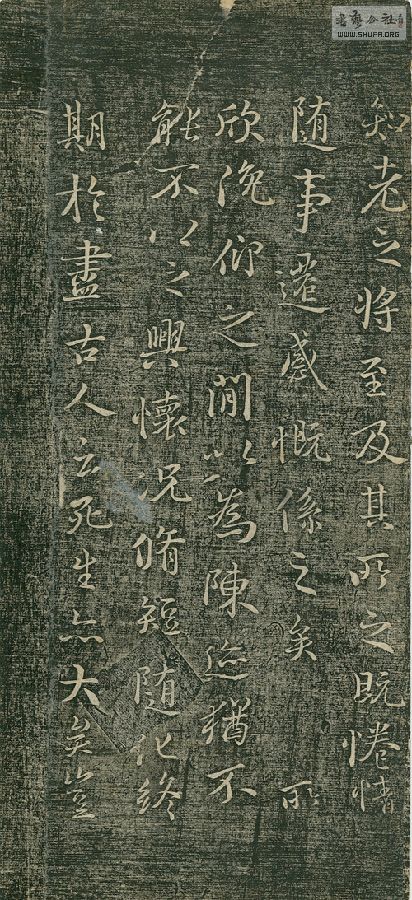 知老之將至及其所之既惓情
隨事遷感慨係之矣 所
欣俛仰之閒以為陳迹猶不
能不以之興懷況脩短隨化終
期於盡古人云死生亦大矣豈
书艺公社
WWW.SHUFA.ORG